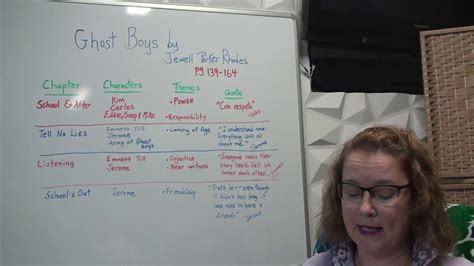 Ghost Boys by
Jewell Parker Rhodes
Pg 139-164
Chapter Characters Themes Quote
School & After Kim Carlos Eddie, Snap, Mike • Power • Responsibility "Con respeto"
Tell No Lies Emmett Till Jerome Army of Ghost Boys • Coming of Age "I understand now. Everything isn't all about me." -Jerome
Listening Emmett Till Jerome • Injustice • Bear witness "Everyone needs their story heard. Felt. We honor each other."
School's Out Jerome • Friendship "Truth is— even though it didn't last long, it was nice to have a friend." -Jerome